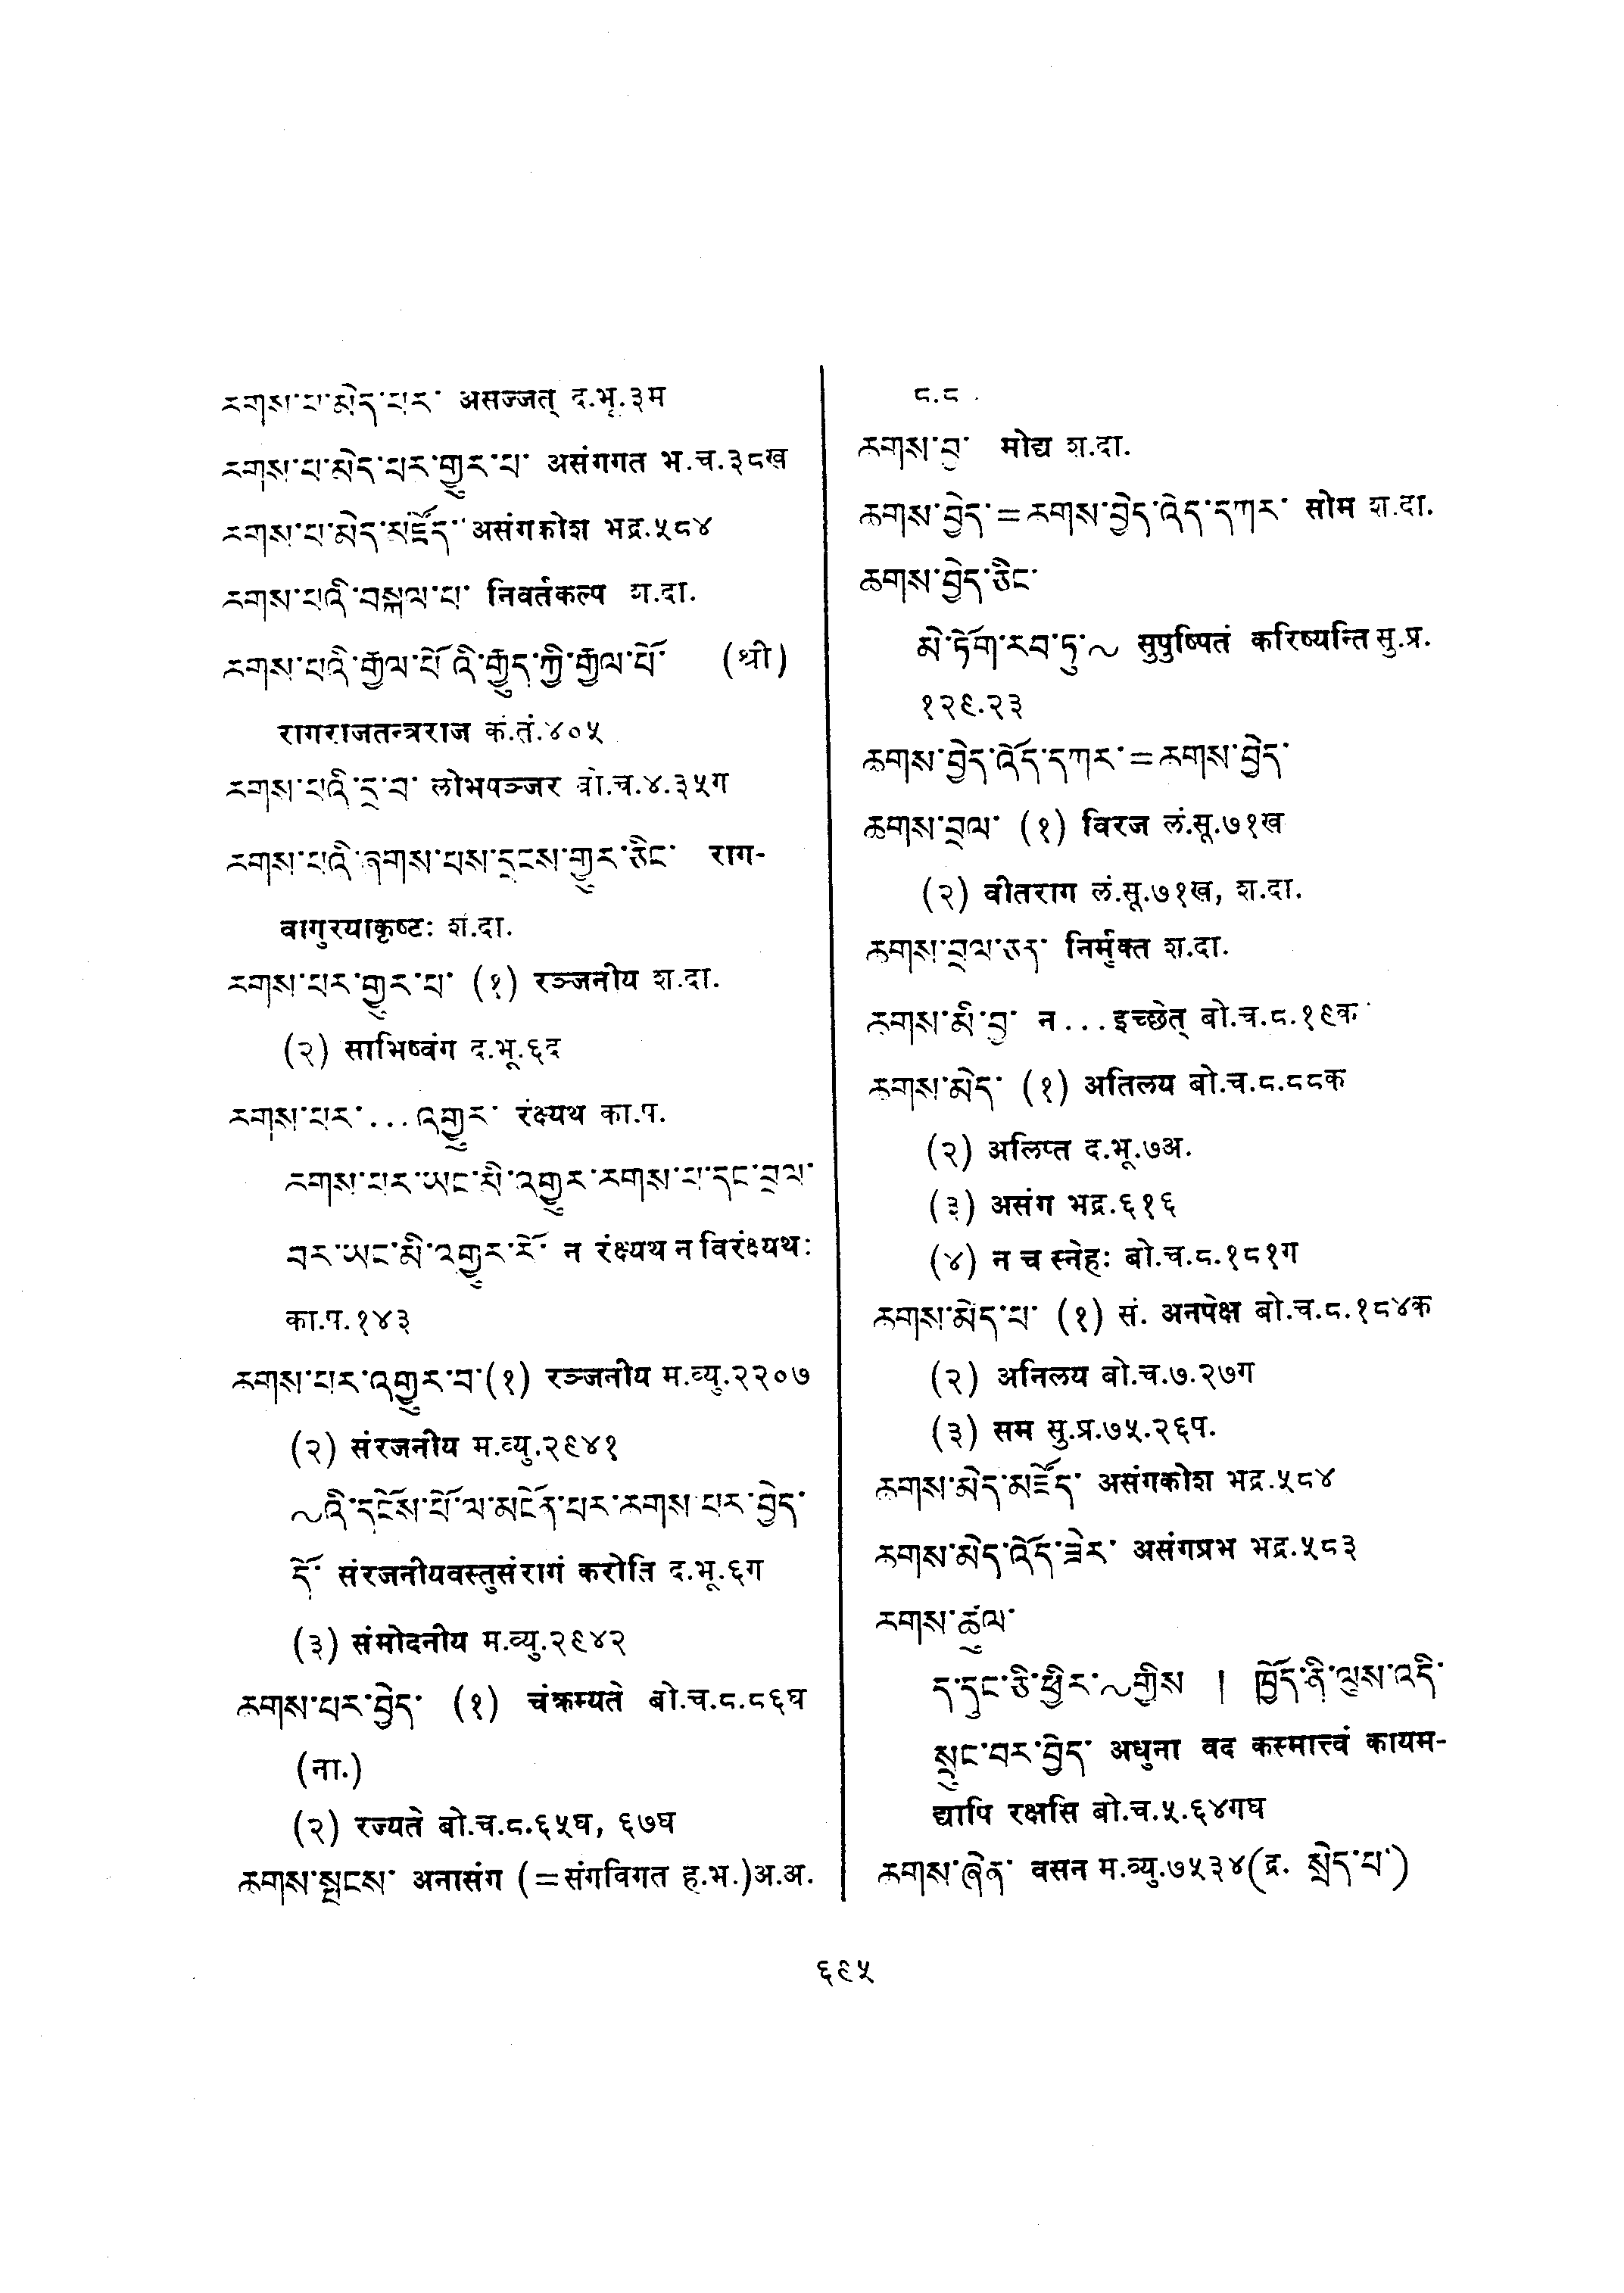 ཆགས་པ་མེད་པར་ असज्जत् द.भू.३म
ཆགས་པ་མེད་པར་གྱུར་པ་ असंगगत भ.च.३८ख
ཆགས་པ་མེད་མཛོད་ असंगकोश भद्र.५८४
ཆགས་པའི་བསྐལ་པ་ निवर्तकल्प श.दा.
ཆགས་པའི་རྒྱལ་པོའི་རྒྱུད་ཀྱི་རྒྱལ་པོ་ (श्री)
रागराजतन्त्रराज क.तं.४०५
ཆགས་པའི་དྲ་བ་ लोभपञ्जर बो.च.४.३५ग
ཆགས་པའི་ཉགས་པས་དྲངས་གྱུར་ཅིང་ राग-
वागुरयाकृष्टः श.दा.
ཆགས་པར་གྱུར་པ་ (१) रञ्जनीय श.दा.
(२) साभिष्वंग द.भू.६द
ཆགས་པར་...འགྱུར་ रंक्ष्यथ का.प.
ཆགས་པར་ཡང་མི་འགྱུར་ཆགས་པ་དང་བྲལ་
བར་ཡང་མི་འགྱུར་རོ་ न रंक्ष्यथ न विरंक्ष्यथः
का.प.१४३
ཆགས་པར་འགྱུར་བ་(१) रञ्जनीय म.व्यु.२२०७
(२) संरजनीय म.व्यु.२९४१
~འི་དངོས་པོ་ལ་མངོན་པར་ཆགས་པར་བྱེད་
དོ་ संरजनीयवस्तुसंरागं करोति द.भू.६ग
(३) संमोदनीय म.व्यु.२९४२
ཆགས་པར་བྱེད་ (१) चंक्रम्यते बो.च.८.८६घ
(ना.)
(२) रज्यते बो.च.८.६५घ, ६७घ
ཆགས་སྤངས་ अनासंग (=संगविगत ह.भ.)अ.अ.
८.८
ཆགས་བྱ་ मोद्य श.दा.
ཆགས་བྱེད་=ཆགས་བྱེད་འོད་དཀར་ सोम श.दा.
ཆགས་བྱེད་ཅིང་
མེ་ཏོག་རབ་ཏུ་~ सुपुष्पितं करिष्यन्ति सु.प्र.
१२९.२३
ཆགས་བྱེད་འོད་དཀར་=ཆགས་བྱེད་
ཆགས་བྲལ་ (१) विरज लं.सू.७१ख
(२) वीतराग लं.सू.७१ख, श.दा.
ཆགས་བྲལ་ཅན་ निर्मुक्त श.दा.
ཆགས་མི་བྱ་ न...इच्छेत् बो.च.८.१९क
ཆགས་མེད་ (१) अतिलय बो.च.८.८८क
(२) अलिप्त द.भू.७अ.
(३) असंग भद्र.६१६
(४) न च स्नेहः बो.च.८.१८१ग
ཆགས་མེད་པ་ (१) सं. अनपेक्ष बो.च.८.१८४क
(२) अनिलय बो.च.७.२७ग
(३) सम सु.प्र.७५.२६प.
ཆགས་མེད་མཛོད་ असंगकोश भद्र.५८४
ཆགས་མེད་འོད་ཟེར་ असंगप्रभ भद्र.५८३
ཆགས་ཚུལ་
ད་དུང་ཅི་ཕྱིར་~གྱིས ། ཁྱོད་ནི་ལུས་འདི་
སྲུང་བར་བྱེད་ अधुना वद कस्मात्त्वं कायम-
द्यापि रक्षसि बो.च.५.६४गघ
ཆགས་ཞེན་ वसन म.व्यु.७५३४(द्र. སྲེད་པ་)
६९५